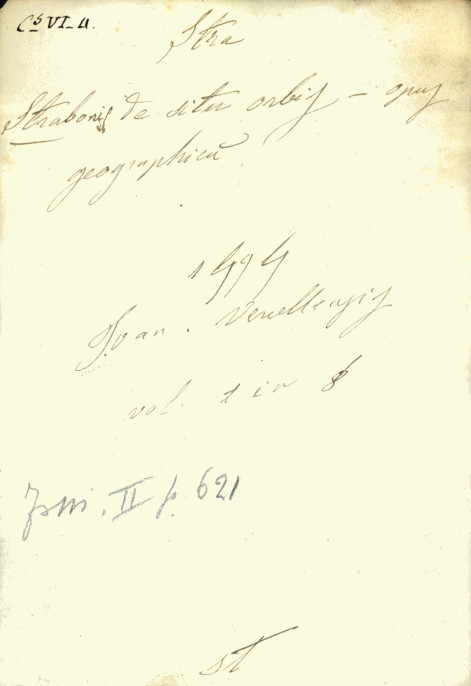 Cs VI_4.
Stra
Strabonis de situ orbis – opus
geographicū
1494
Joan. Vercellensis
vol. 1 in 8
II p. 621
st